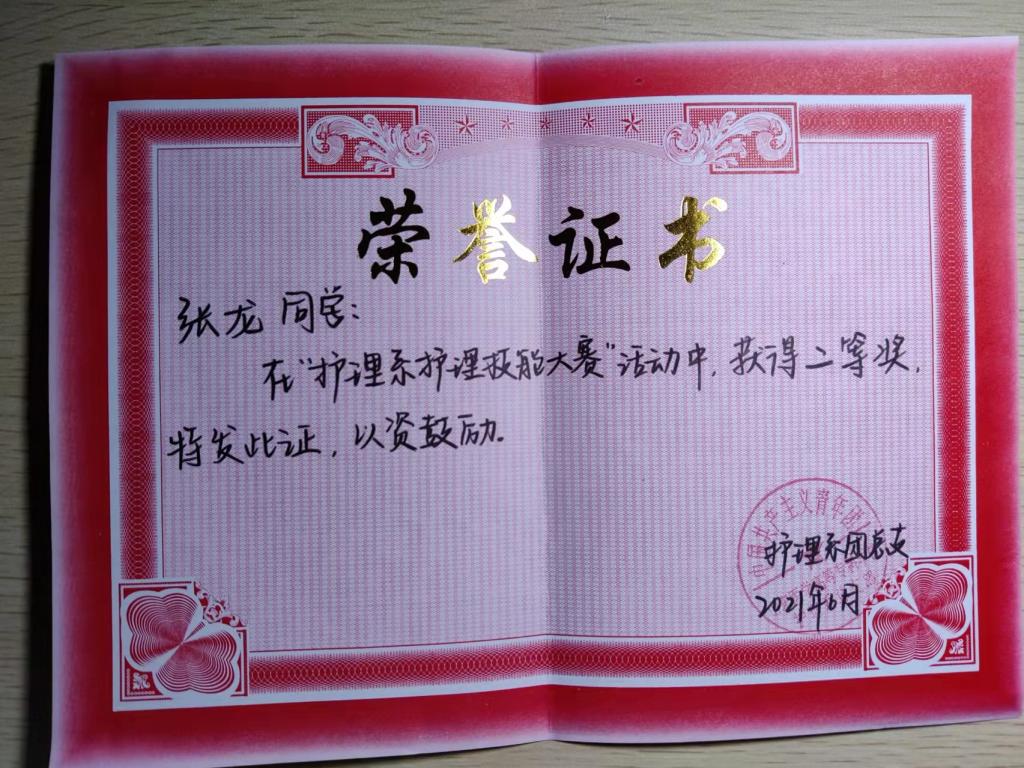 荣誉证书
张龙同学:
在“护理系护理技能大赛”活动中,获得二等奖,
特发此证,以资鼓励.
中国共产主义青年团
护理系团总支
2021年6月